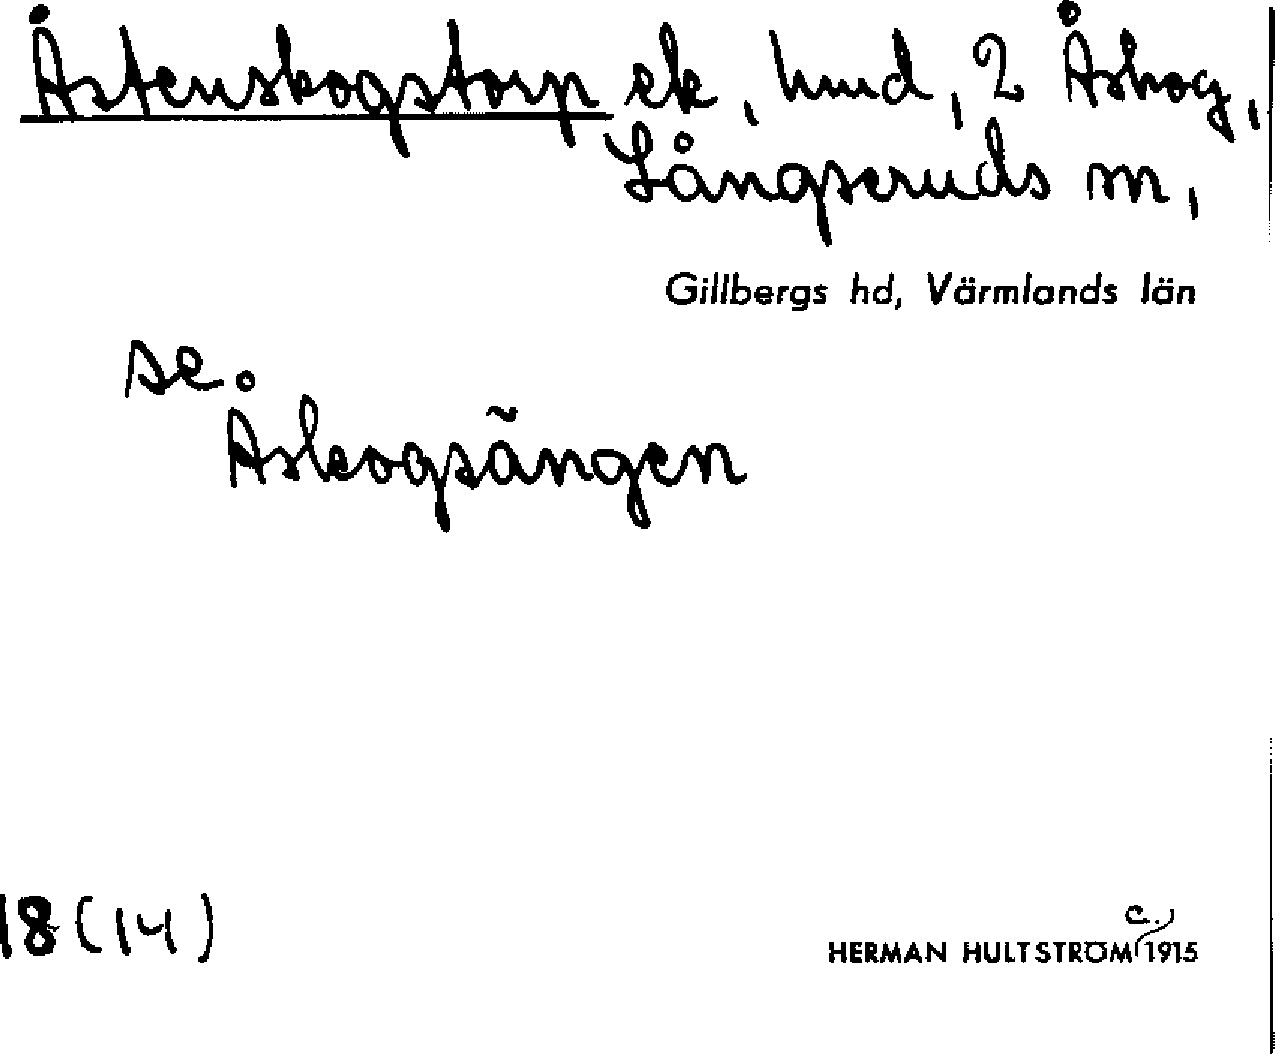 Åstenskogstorp ek, hmd, 2 Åskog,
Långseruds sn,
Gillbergs hd, Värmlands län
se.
Åskogsängen
18 (14)
c.
HERMAN HULTSTRÖM 1915